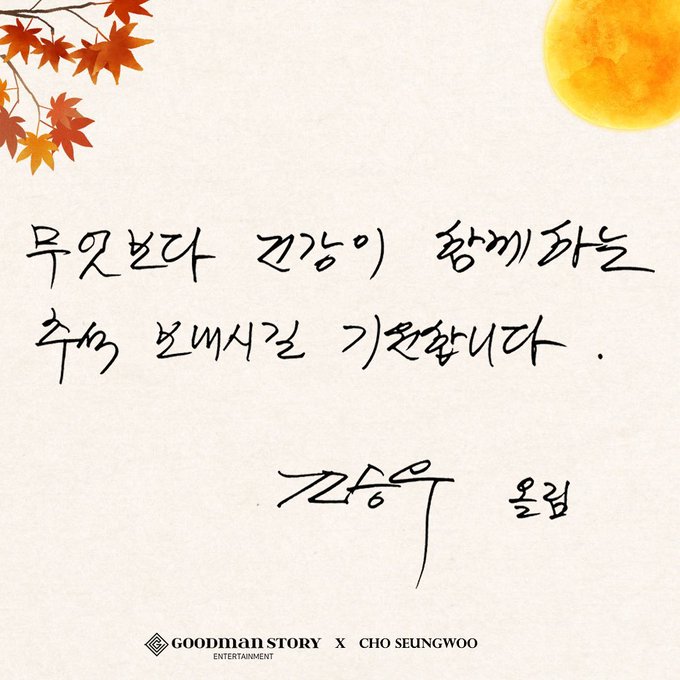 무엇보다 건강이 함께하는
추석 보내시길 기원합니다.
조승우 올림
GOODMAN STORY X CHO SEUNGWOO
ENTERTAINMENT